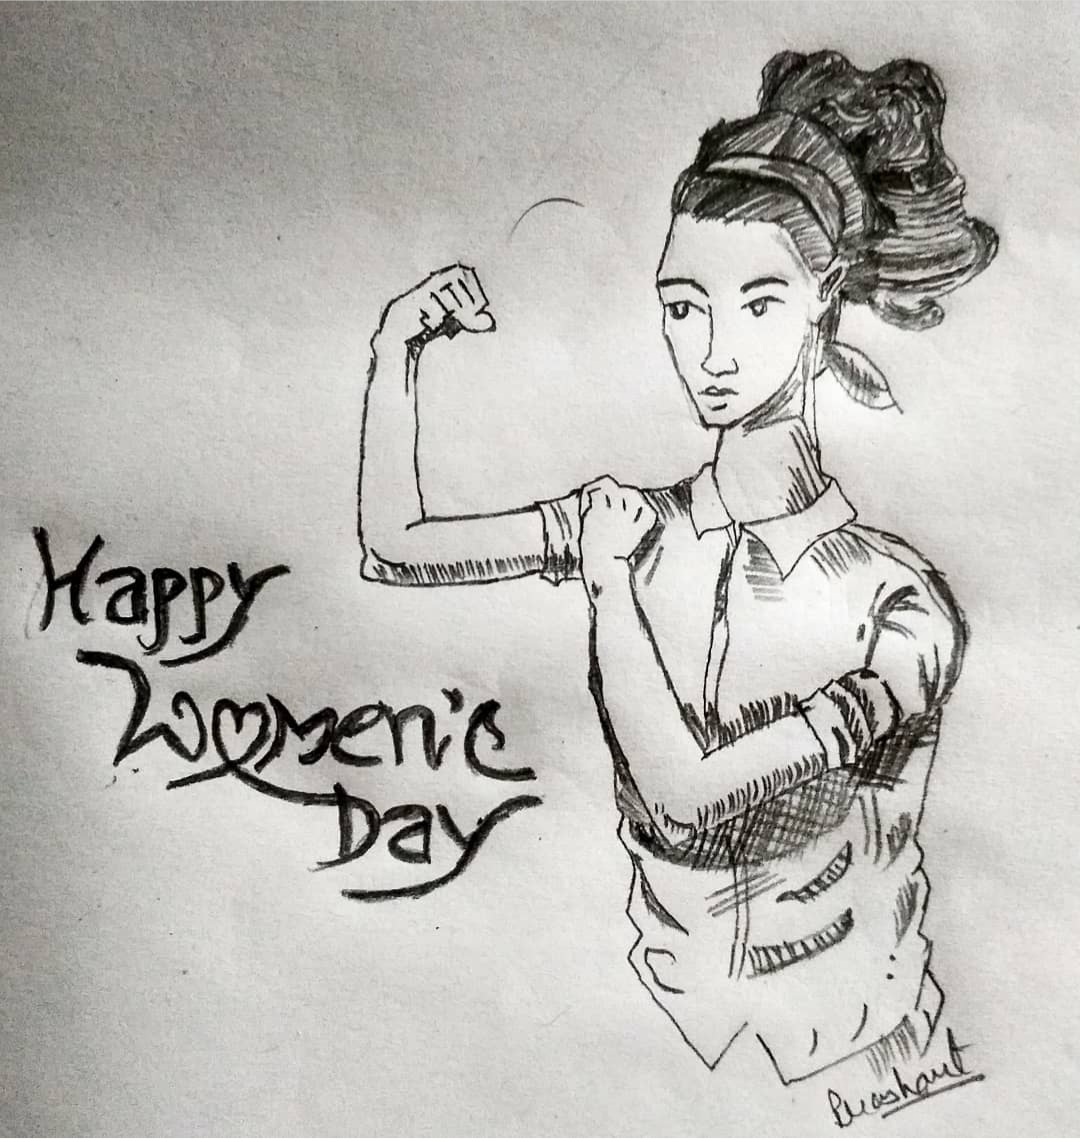 Happy
Women's
Day
Prashant